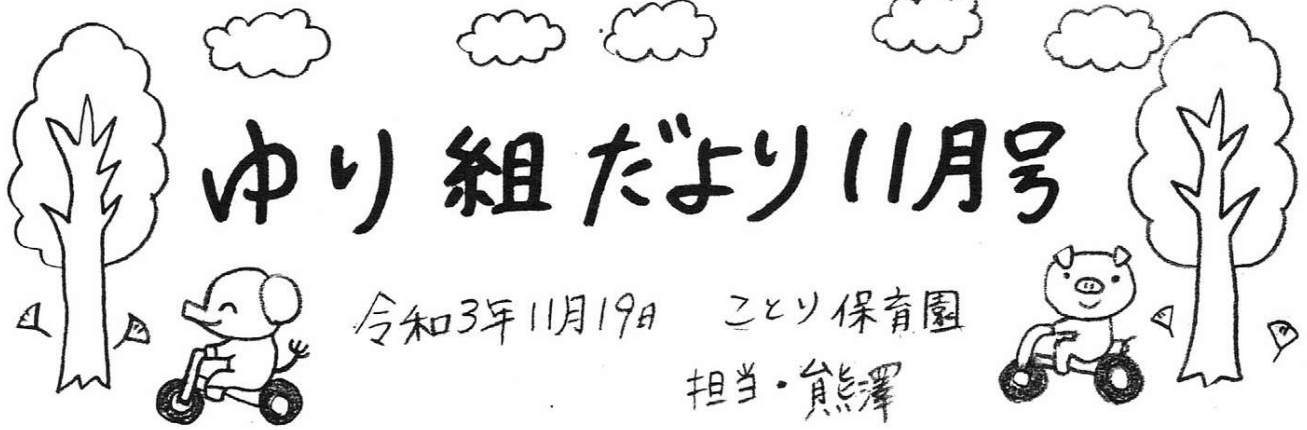 ゆり組だより11月号
令和3年11月19日 ことり保育園
担当・熊澤